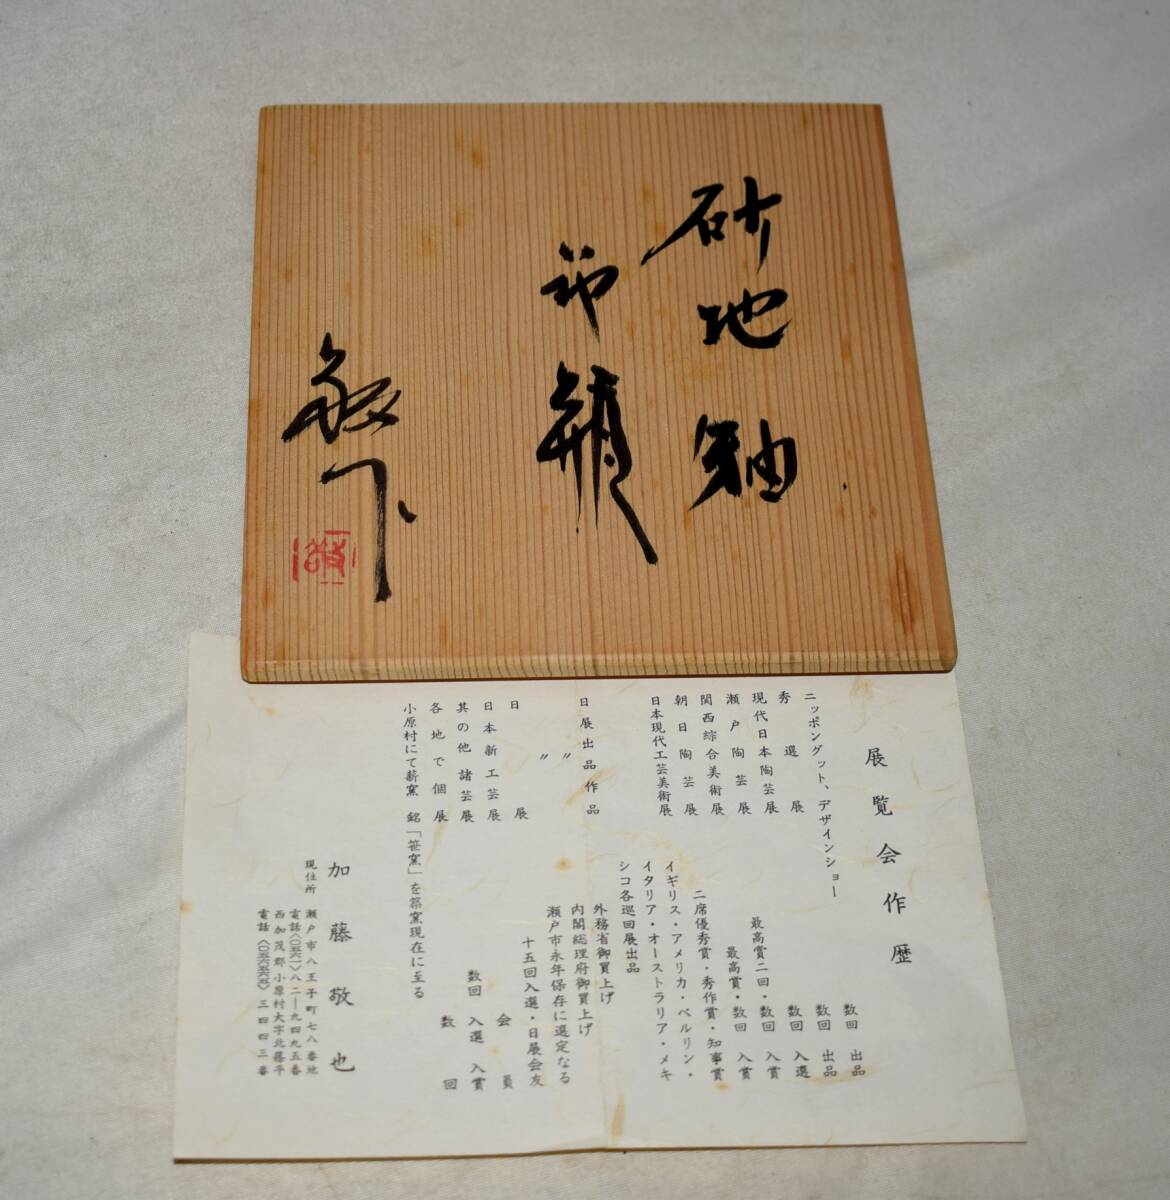 砂地釉
花瓶
敬
展覧会作歴
ニッポングット、デザインショー 数回 出品
秀選展 数回 出品
現代日本陶芸展 数回 入選
瀬戸陶芸展 最高賞二回・数回 入賞
関西綜合美術展 最高賞・数回 入賞
朝日陶芸展 二席優秀賞・秀作賞・知事賞
日本現代工芸美術展 イギリス・アメリカ・ベルリン・
イタリア・オーストラリア・メキ
シコ各巡回展出品
日展出品作品 外務省御買上げ
〃 内閣総理府御買上げ
〃 瀬戸市永年保存に選定なる
日展 十五回入選・日展会友
日本新工芸展 会員
其の他諸芸展 数回 入選 入賞
各地で個展 数回
小原村にて薪窯 銘「笹窯」を築窯現在に至る
加藤敬也
現住所 瀬戸市八王子町七八番地
電話〈〇五六一〉八二―九四九五番
西加茂郡小原村大字北篠平
電話〈〇五六五六五〉三四四三番